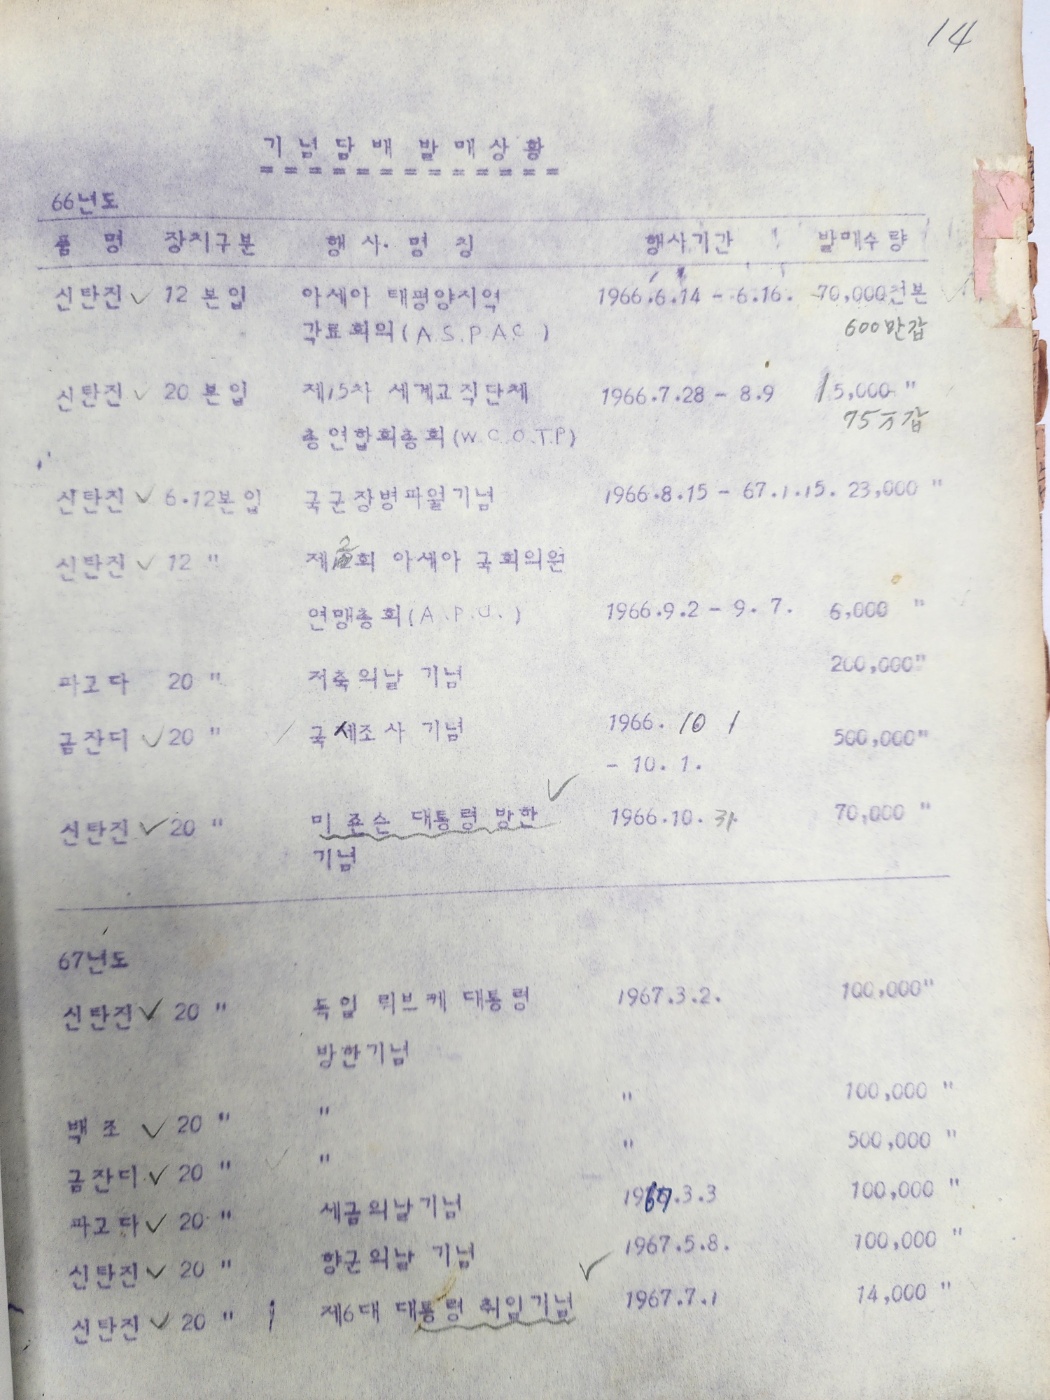 14
기념담배 발매상황
66년도
품 명 장치구분 행 사 명 칭 행사기간 발매수량
신탄진 ✓ 12 본입 아세아 태평양지역 1966.6.14 - 6.16. 70,000천본
각료회의(A.S.P.A.C ) 600만갑
신탄진 ✓ 20 본입 제15차 세계교직단체 1966.7.28 - 8.9 15,000 "
총연합회총회(W.C.O.T.P) 75만갑
신탄진 ✓ 6.12본입 국군장병파월기념 1966.8.15 - 67.1.15. 23,000 "
신탄진 ✓ 12 " 제2회 아세아 국회의원
연맹총회(A.P.U.) 1966.9.2 - 9.7. 6,000 "
파고다 20 " 저축의날 기념 200,000"
금잔디 ✓ 20 " 국세조사 기념 1966. 10 1 500,000"
- 10. 1.
신탄진 ✓ 20 " 미 존슨 대통령 방한 ✓ 1966.10. 70,000 "
기념
67년도
신탄진 ✓ 20 " 독일 뤼브케 대통령 1967.3.2. 100,000"
방한기념
백 조 ✓ 20 " " " 100,000 "
금잔디 ✓ 20 " " " 500,000 "
파고다 ✓ 20 " 세금의날기념 1967.3.3 100,000 "
신탄진 ✓ 20 " 향군의날 기념 1967.5.8. 100,000 "
신탄진 ✓ 20 " 제6대 대통령 취임기념 ✓ 1967.7.1 14,000 "